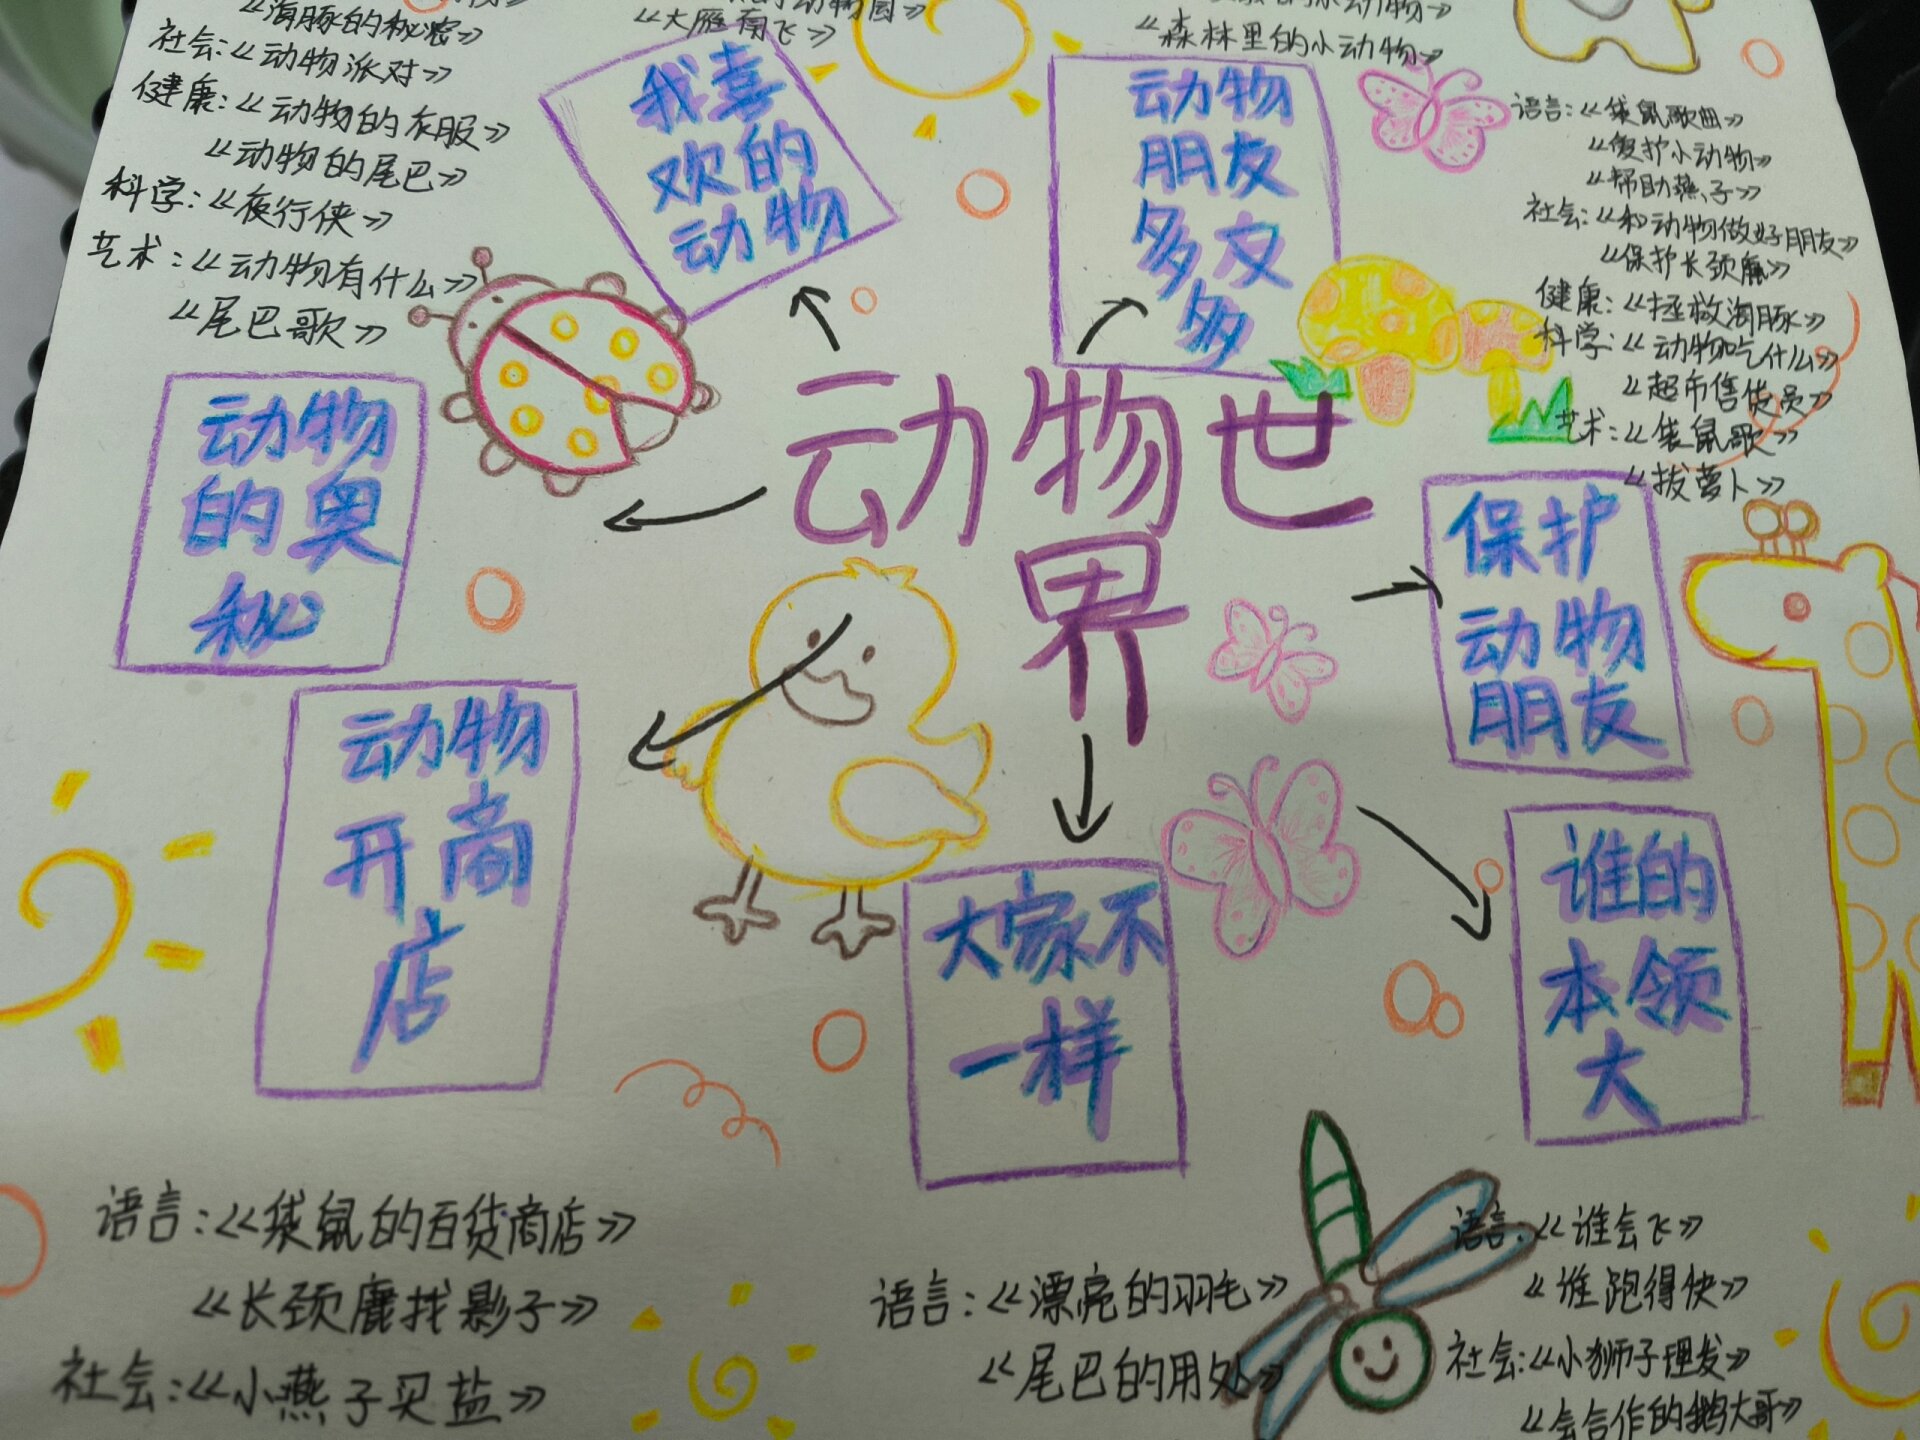 《海豚的秘密》
社会:《动物派对》
健康:《动物的衣服》
《动物的尾巴》
科学:《夜行侠》
艺术:《动物有什么》
《尾巴歌》
《大雁南飞》
《森林里的小动物》
语言:《袋鼠歌曲》
《爱护小动物》
《帮助燕子》
社会:《和动物做好朋友》
《保护长颈鹿》
健康:《拯救海豚》
科学:《动物吃什么》
《超市售货员》
艺术:《袋鼠歌》
《拔萝卜》
我喜
欢的
动物
动物
朋友
多又
多
动物世
界
动物
的奥
秘
保护
动物
朋友
动物
开商
店
大家不
一样
谁的
本领
大
语言:《袋鼠的百货商店》
《长颈鹿找影子》
社会:《小燕子买盐》
语言:《漂亮的羽毛》
《尾巴的用处》
语言:《谁会飞》
《谁跑得快》
社会:《小狮子理发》
《会合作的鹅大哥》